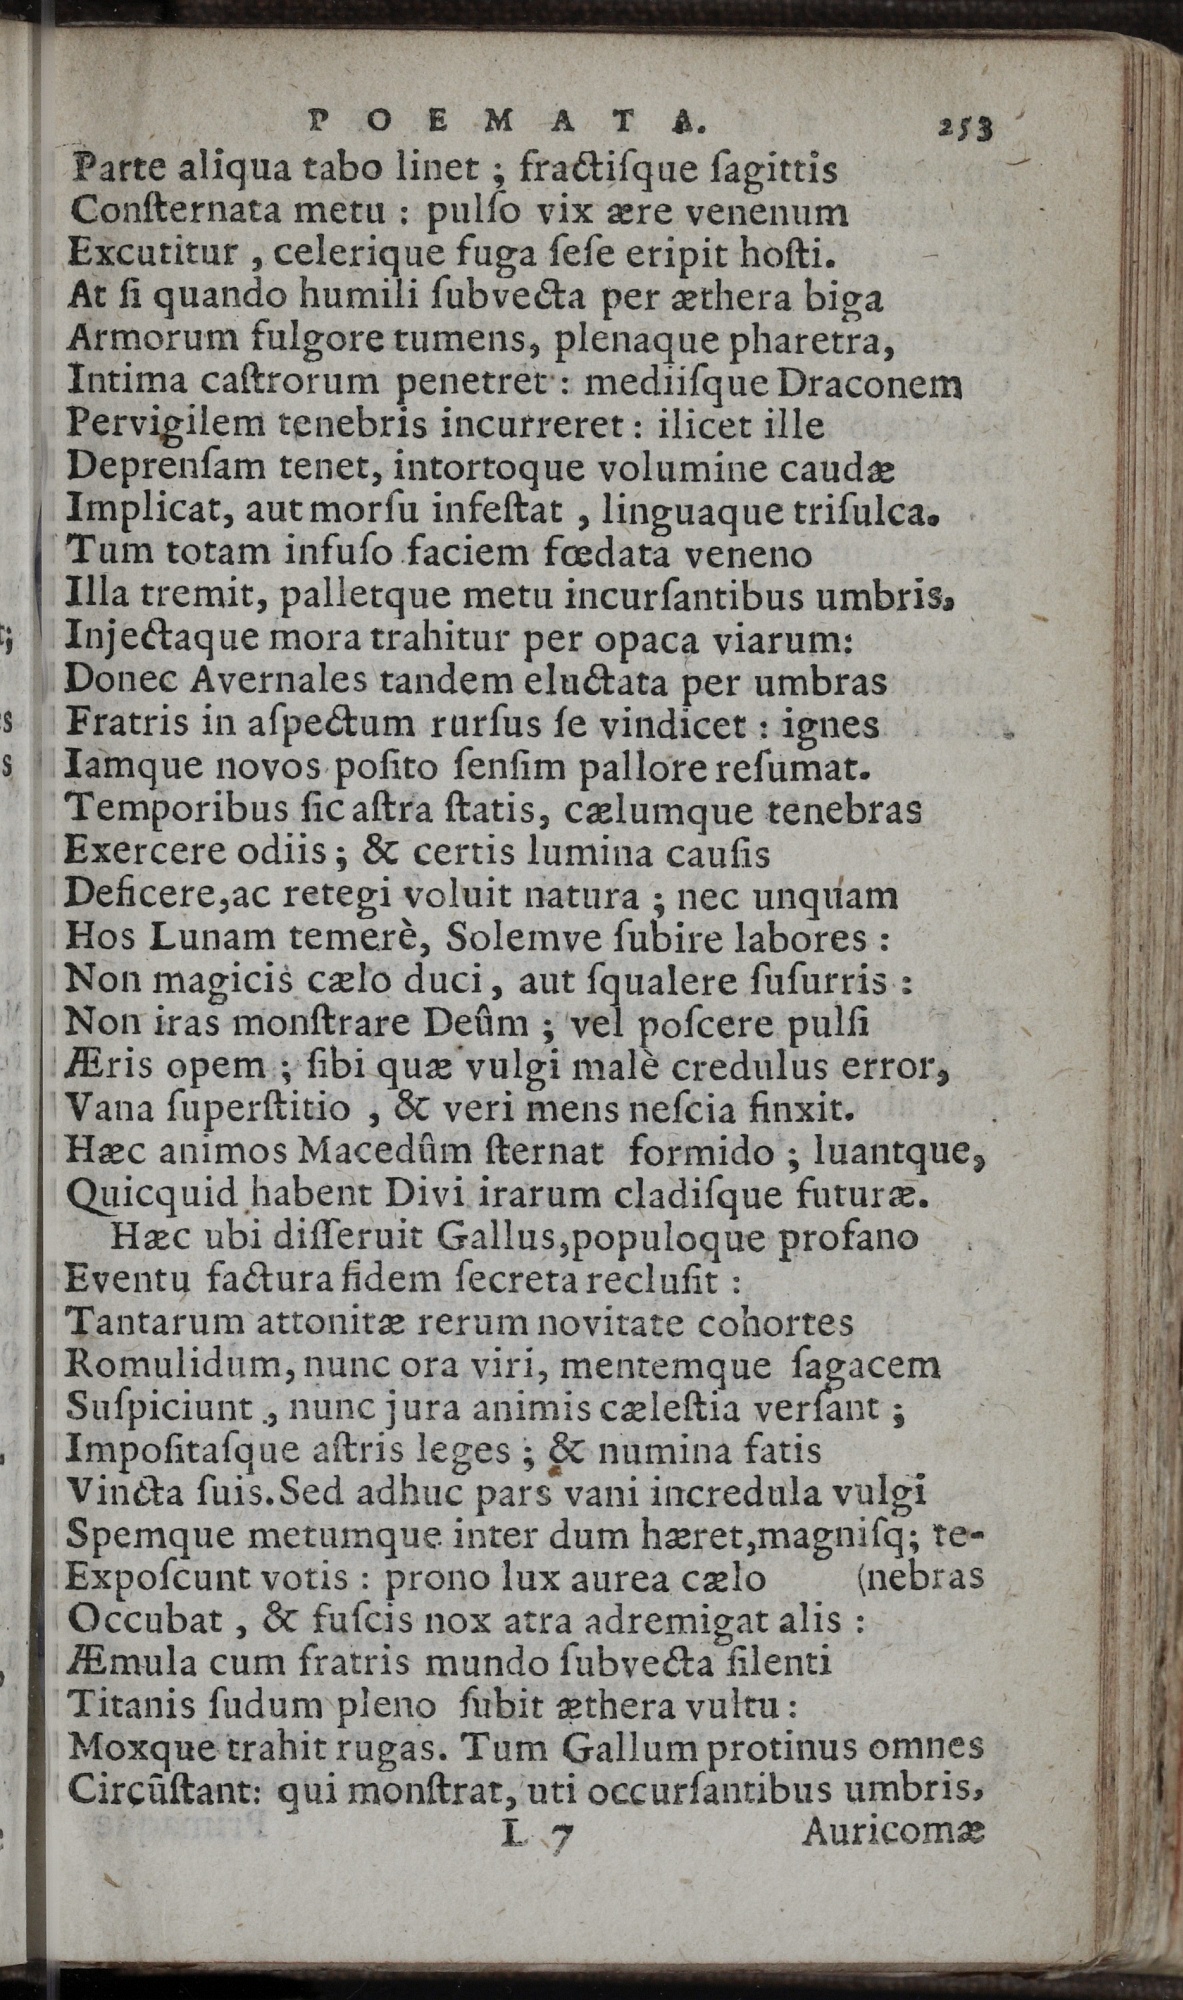 POEMATA. 253
Parte aliqua tabo linet ; fractiſque ſagittis
Conſternata metu : pulſo vix ære venenum
Excutitur , celerique fuga ſeſe eripit hoſti.
At ſi quando humili ſubvecta per æthera biga
Armorum fulgore tumens, plenaque pharetra,
Intima caſtrorum penetret : mediiſque Draconem
Pervigilem tenebris incurreret : ilicet ille
Deprenſam tenet, intortoque volumine caudæ
Implicat, aut morſu infeſtat , linguaque triſulca.
Tum totam infuſo faciem fœdata veneno
Illa tremit, palletque metu incurſantibus umbris,
Injectaque mora trahitur per opaca viarum:
Donec Avernales tandem eluctata per umbras
Fratris in aſpectum rurſus ſe vindicet : ignes
Iamque novos poſito ſenſim pallore reſumat.
Temporibus ſic aſtra ſtatis, cælumque tenebras
Exercere odiis ; & certis lumina cauſis
Deficere,ac retegi voluit natura ; nec unquam
Hos Lunam temerè, Solemve ſubire labores :
Non magicis cælo duci , aut ſqualere ſuſurris :
Non iras monſtrare Deûm ; vel poſcere pulſi
Æris opem ; ſibi quæ vulgi malè credulus error,
Vana ſuperſtitio , & veri mens neſcia finxit.
Hæc animos Macedûm ſternat formido ; luantque,
Quicquid habent Divi irarum cladiſque futuræ.
Hæc ubi diſſeruit Gallus,populoque profano
Eventu factura fidem ſecreta recluſit :
Tantarum attonitæ rerum novitate cohortes
Romulidum, nunc ora viri, mentemque ſagacem
Suſpiciunt , nunc jura animis cæleſtia verſant ;
Impoſitaſque aſtris leges ; & numina fatis
Vincta ſuis.Sed adhuc pars vani incredula vulgi
Spemque metumque inter dum hæret,magniſq; te-
Expoſcunt votis : prono lux aurea cælo (nebras
Occubat , & fuſcis nox atra adremigat alis :
Æmula cum fratris mundo ſubvecta ſilenti
Titanis ſudum pleno ſubit æthera vultu :
Moxque trahit rugas. Tum Gallum protinus omnes
Circũſtant: qui monſtrat, uti occurſantibus umbris,
L 7 Auricomæ